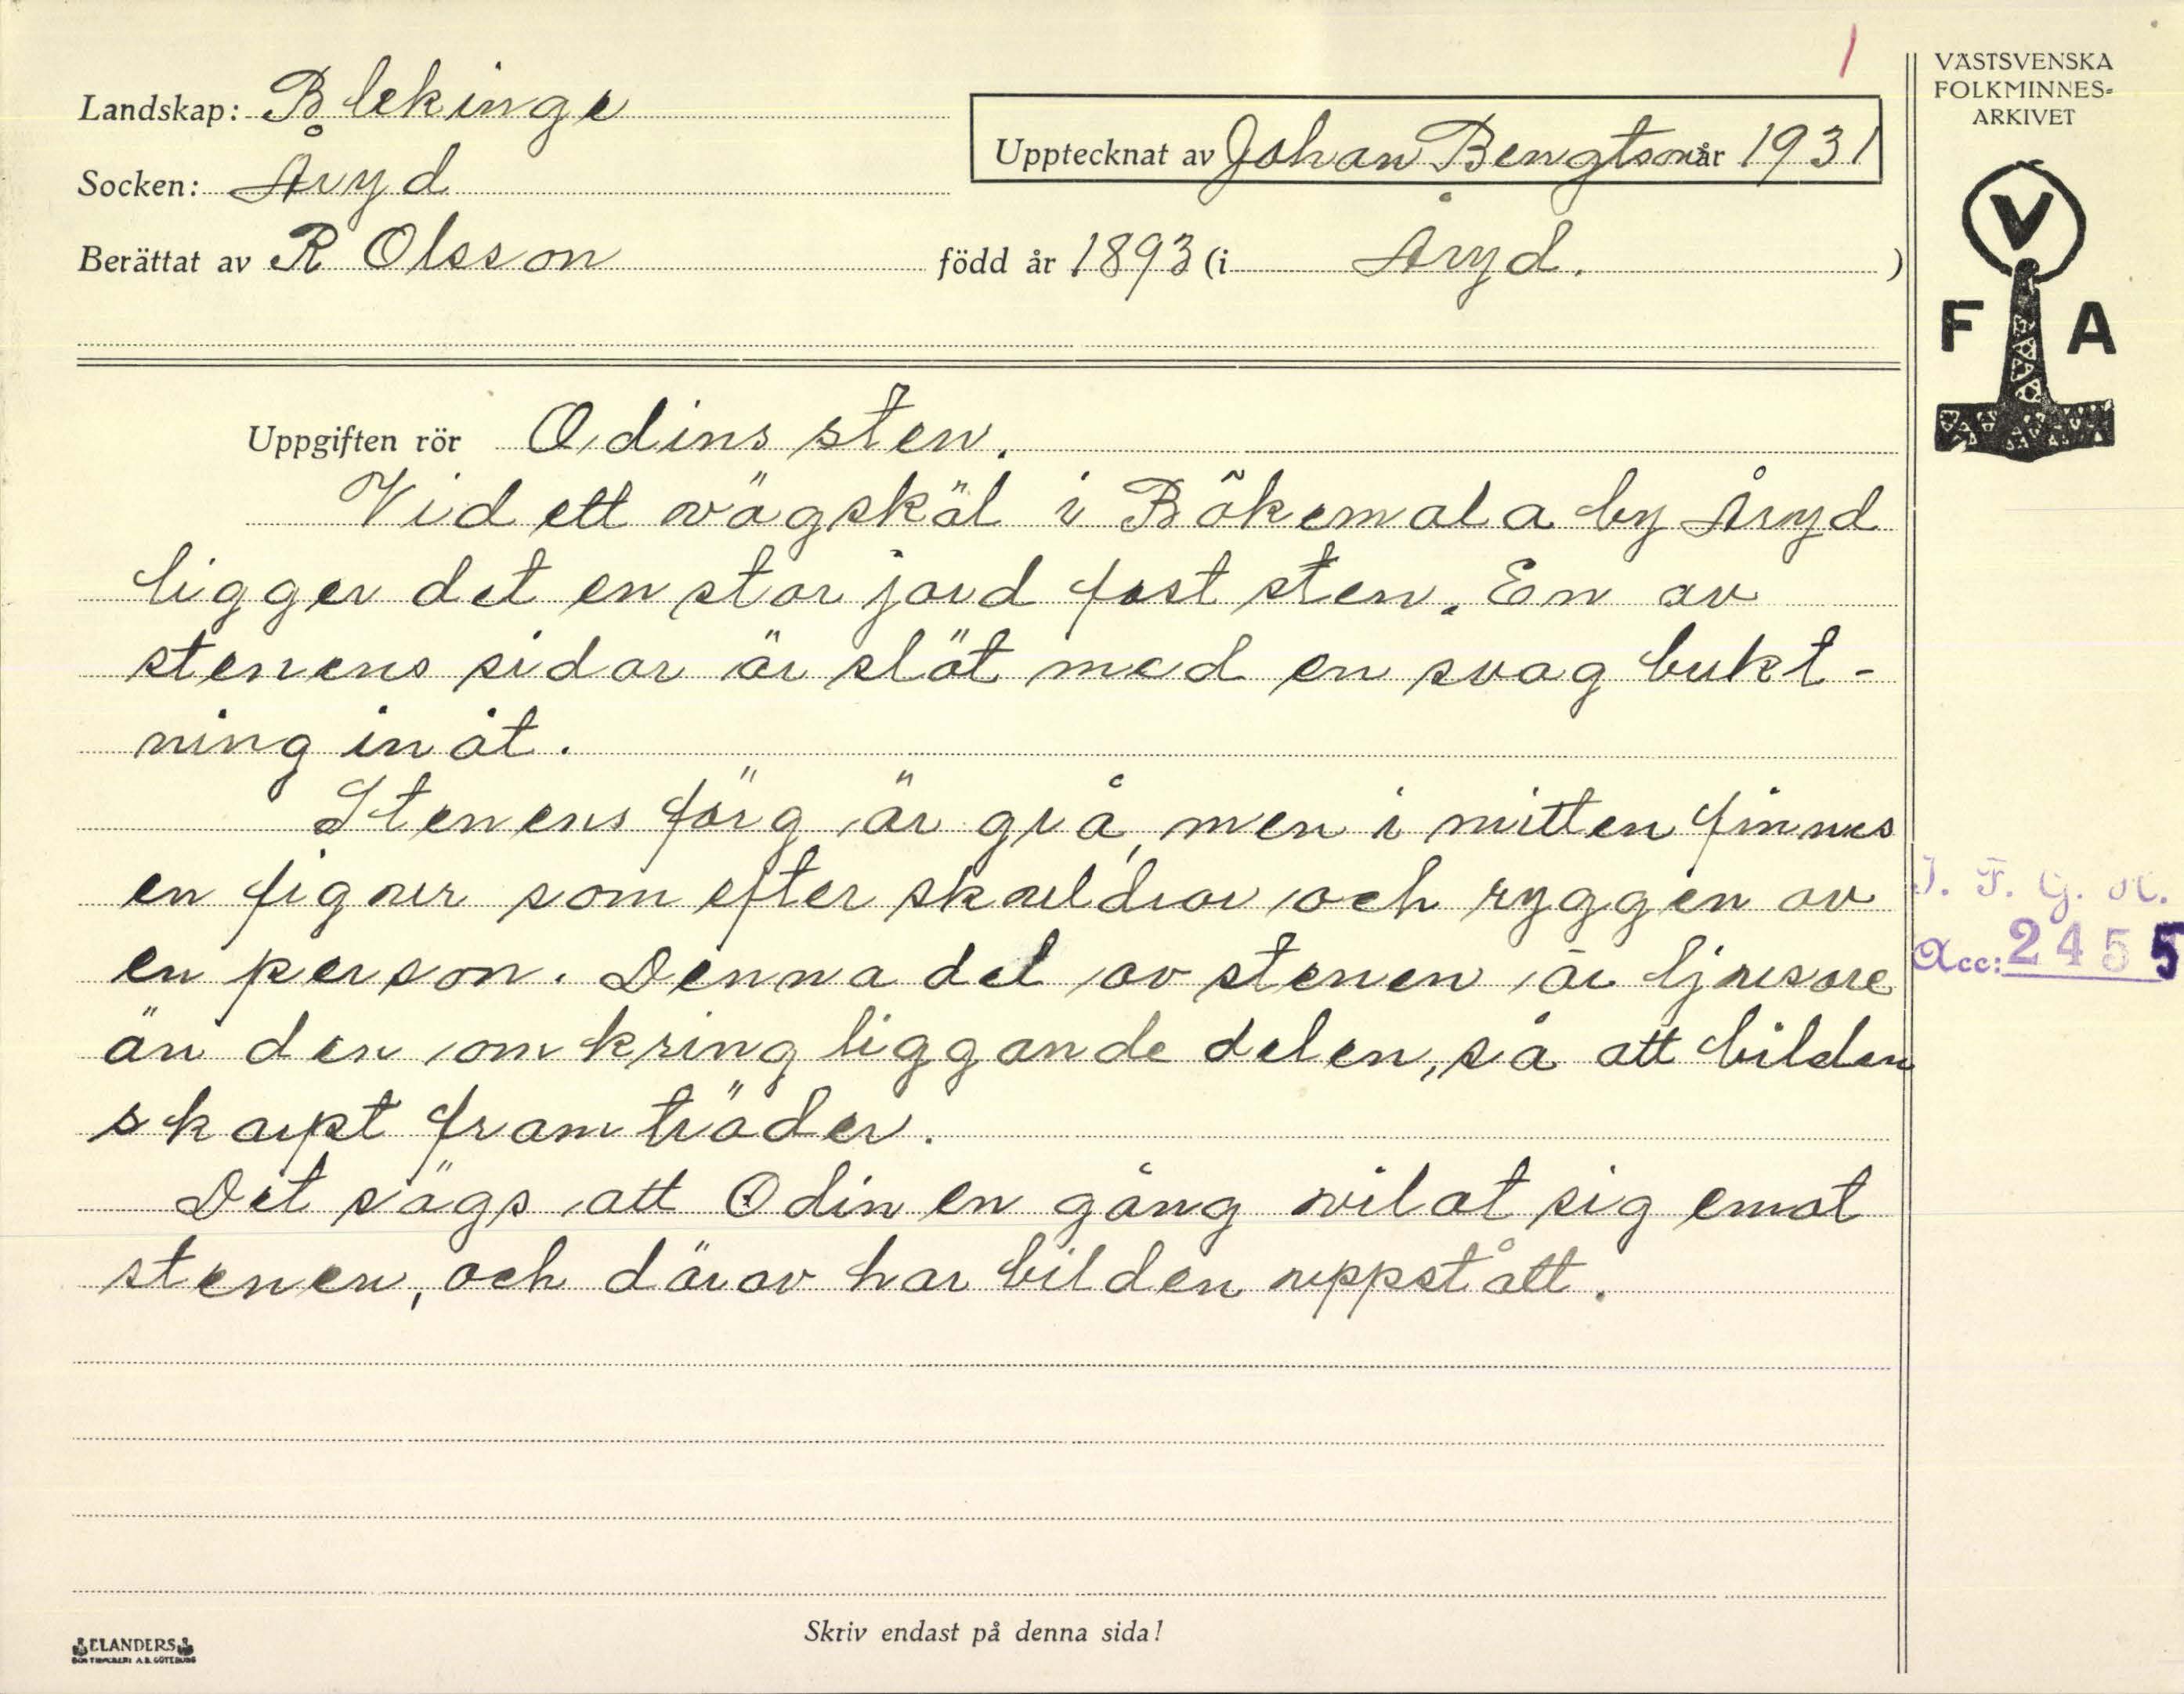 1
VÄSTSVENSKA
FOLKMINNES-
ARKIVET
Landskap: Blekinge
Upptecknat av Johan Bengtson år 1931
Socken: Åryd
Berättat av R Olsson född år 1893 (i Åryd. )
V
F A
Uppgiften rör Odins sten.
Vid ett vägskäl i Bökemåla by Åryd
ligger det en stor jord fast sten. En av
stenens sidor är slät med en svag bukt-
ning inåt.
Stenens färg är grå, men i mitten finnes
en figur som efter skuldror och ryggen av
en person. Denna del av stenen är ljusare
än den omkring liggande delen, så att bilden
skarpt framträder.
Det sägs att Odin en gång vilat sig emot
stenen, och därav har bilden uppstått.
I. F. G. H.
Acc: 2455
Skriv endast på denna sida!
ELANDERS
BOKTRYCKERI A.B. GÖTEBORG